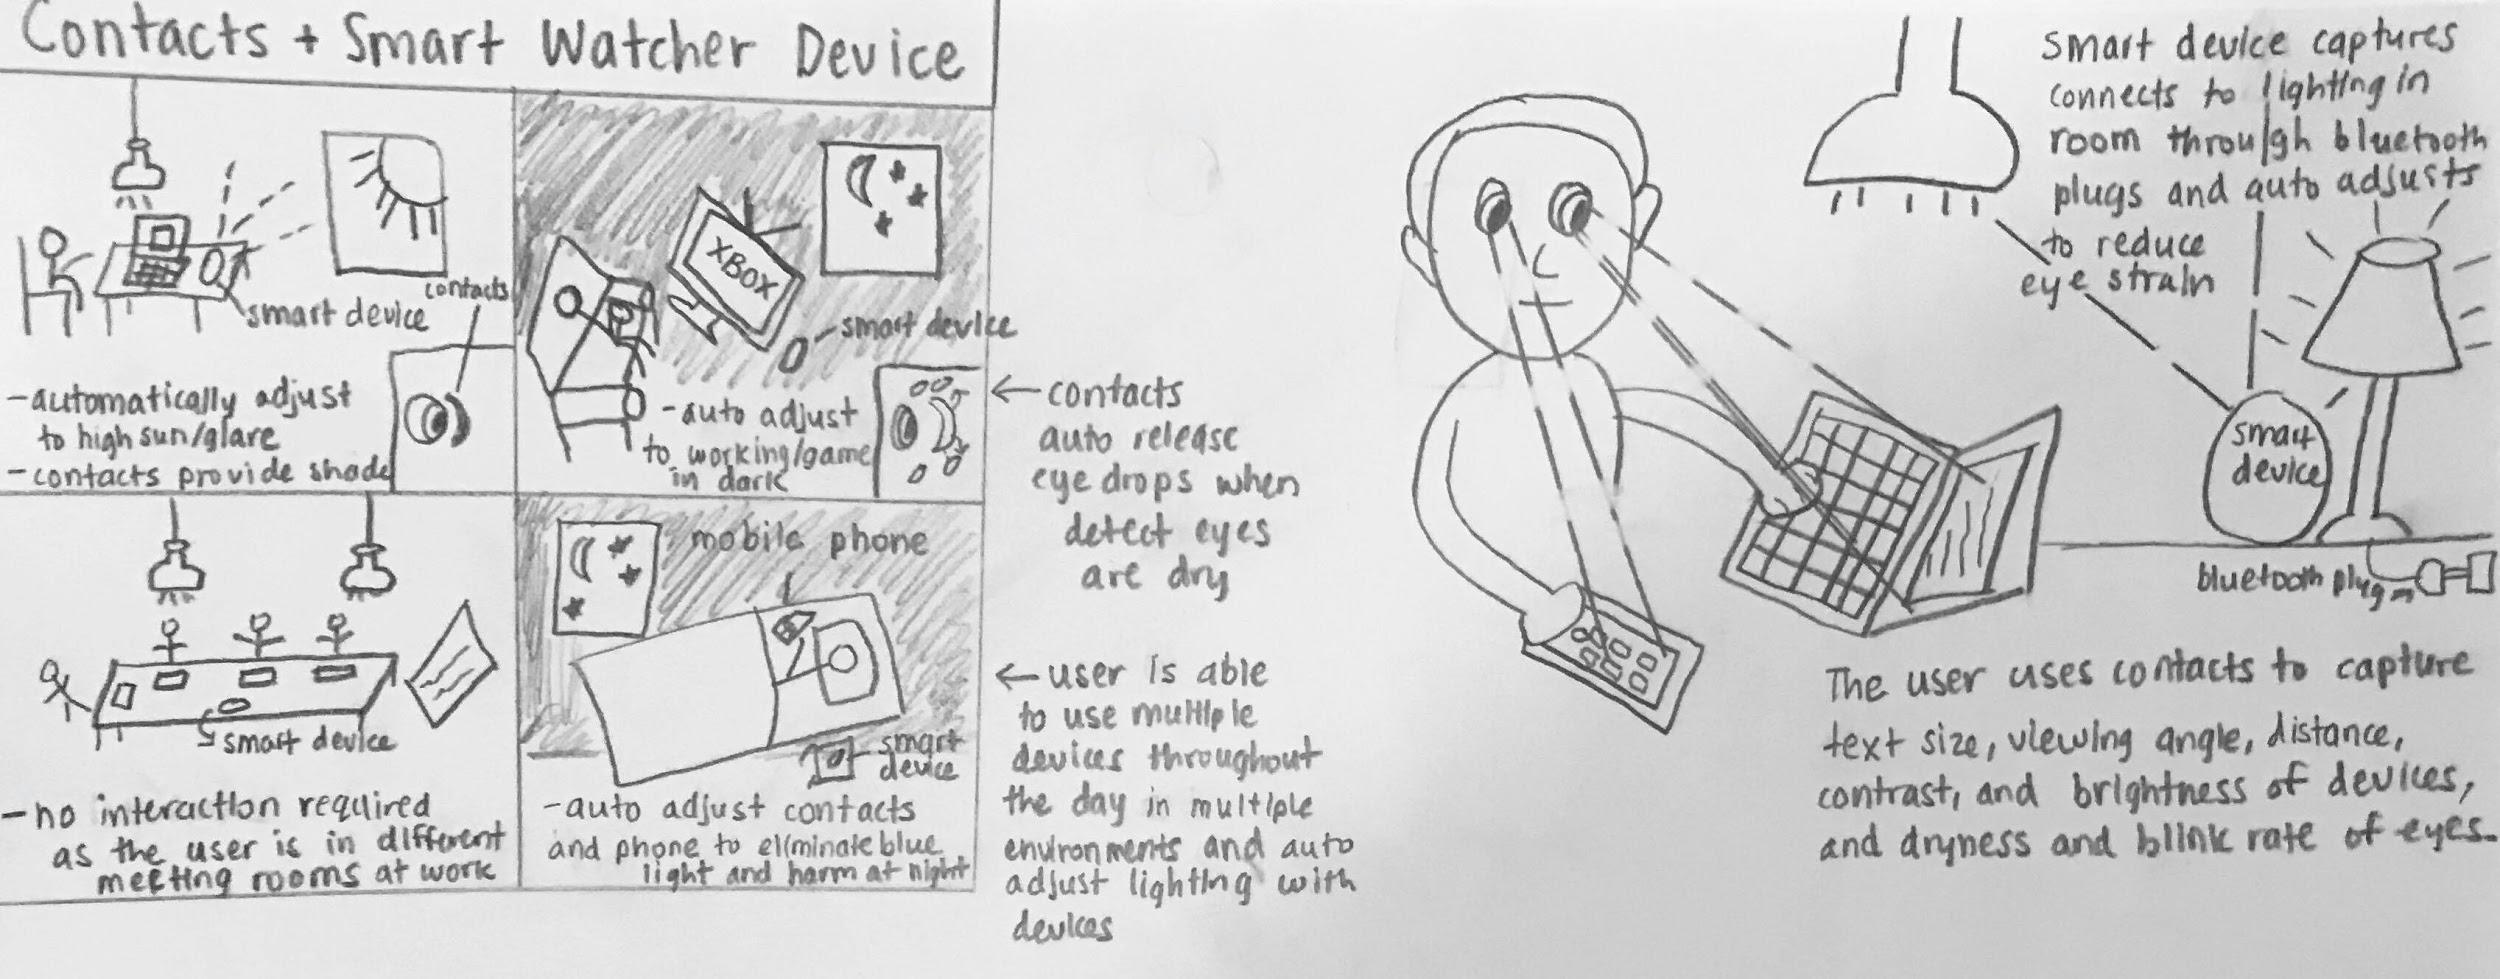 Contacts + Smart Watcher Device
contacts
smart device
- automatically adjust
to high sun/glare
- contacts provide shade
XBOX
smart device
- auto adjust
to working/game
in dark
smart device
- no interaction required
as the user is in different
meeting rooms at work
mobile phone
smart
device
- auto adjust contacts
and phone to eliminate blue
light and harm at night
← contacts
auto release
eye drops when
detect eyes
are dry
← user is able
to use multiple
devices throughout
the day in multiple
environments and auto
adjust lighting with
devices
smart device captures
connects to lighting in
room through bluetooth
plugs and auto adjusts
to reduce
eye strain
smart
device
bluetooth plug
The user uses contacts to capture
text size, viewing angle, distance,
contrast, and brightness of devices,
and dryness and blink rate of eyes.